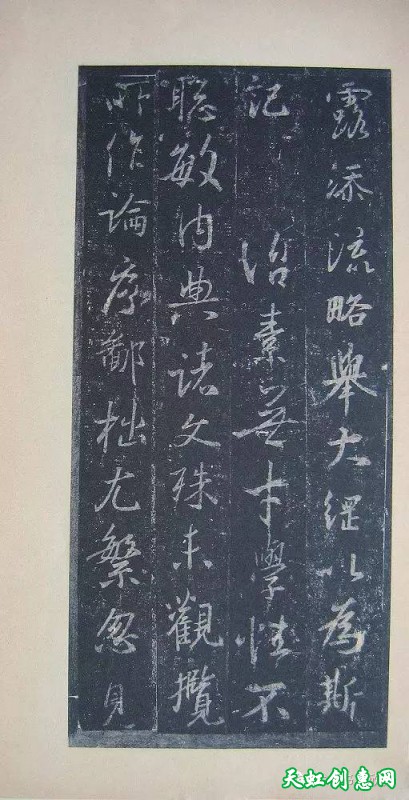 露添流略舉大綱以為斯
記 治素無才學性不
聰敏内典諸文殊未觀攬
所作論序鄙拙尤繁忽見
天虹创惠网